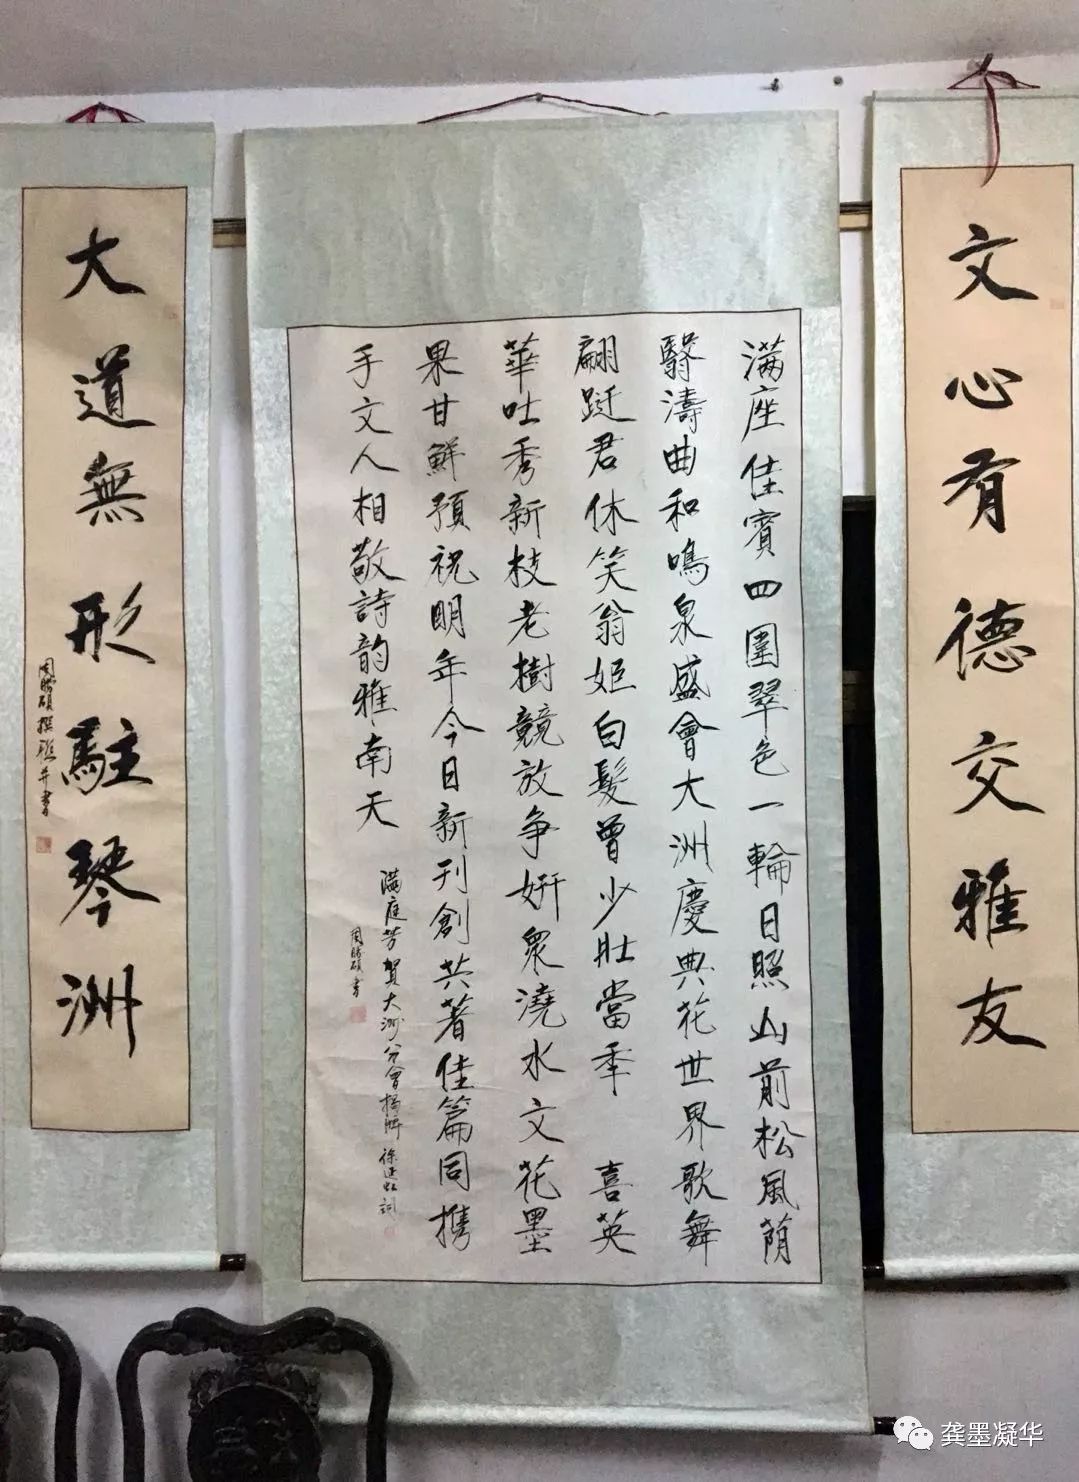 文心有德交雅友
满座佳賓四圍翠色一輪日照山前松風荫
翳濤曲和鳴泉盛會大洲慶典花世界歌舞
翩跹君休笑翁姬白髮曾少壯當年 喜英
華吐秀新枝老樹競放争妍眾澆水文花墨
果甘鮮預祝明年今日新刊創共著佳篇同携
手文人相敬詩韵雅南天
满庭芳賀大洲分會揭牌 徐建虹詞
周勝碩書
大道無形駐琴洲
周勝碩撰联并書
龚墨凝华